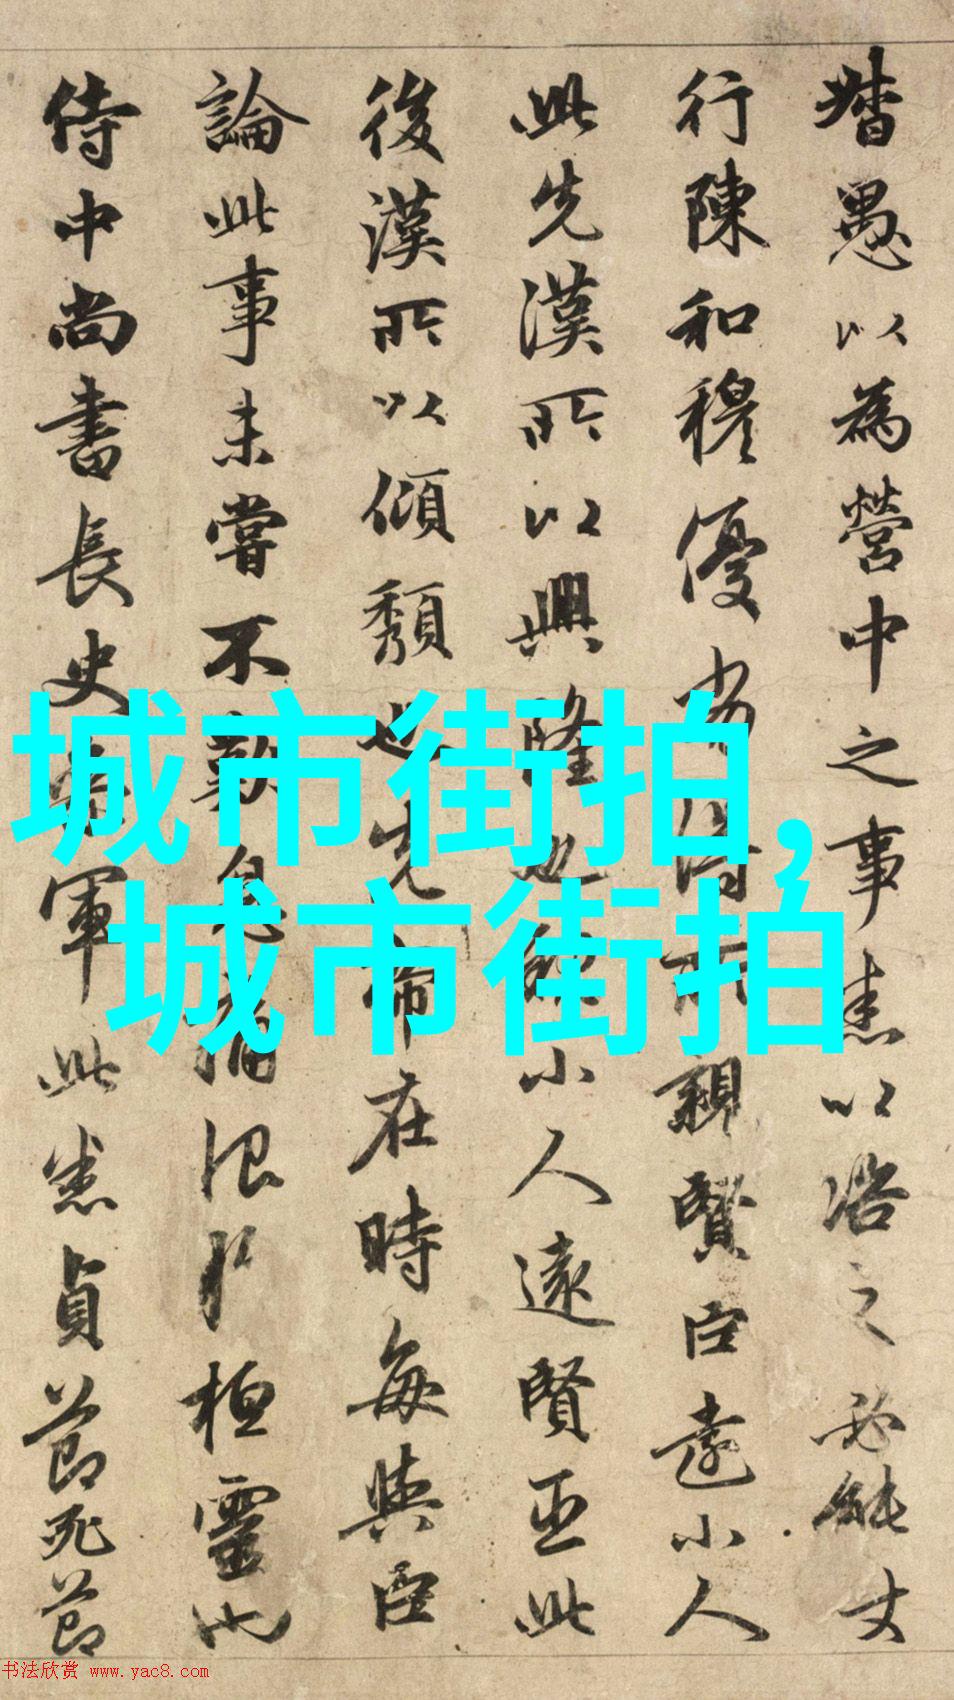 督愚以為營中之事悉以咨之必能
行陳和穆優劣得所親賢臣遠小人
此先漢所以興隆也親小人遠賢臣此
後漢所以傾頹也先帝在時每與臣
論此事未嘗不歎息痛恨於桓靈也
侍中尚書長史參軍此悉貞節死節
城市街拍,
城市街拍
书法欣赏 www.yac8.com